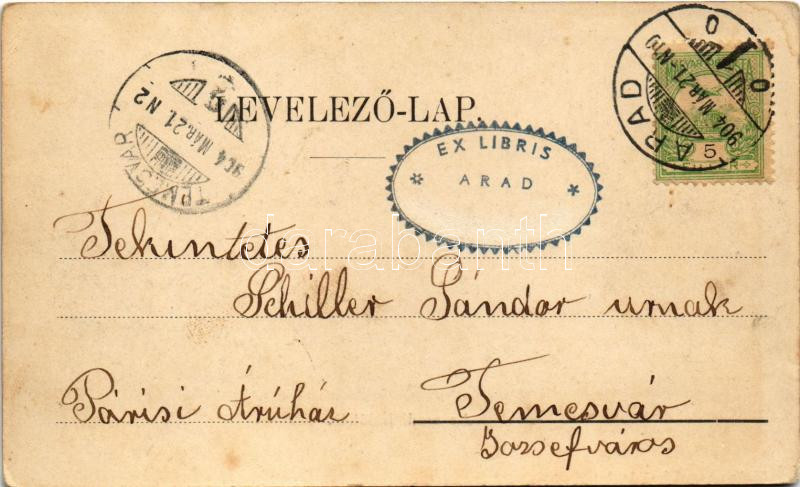 LEVELEZŐ-LAP.
TEMESVÁR
904 MÁR. 21. N2
ARAD
904 MÁR 21. N10
5
EX LIBRIS
* ARAD *
darabanth
Tekintetes
Schiller Sándor urnak
Párisi Árúház
Temesvár
Józsefváros